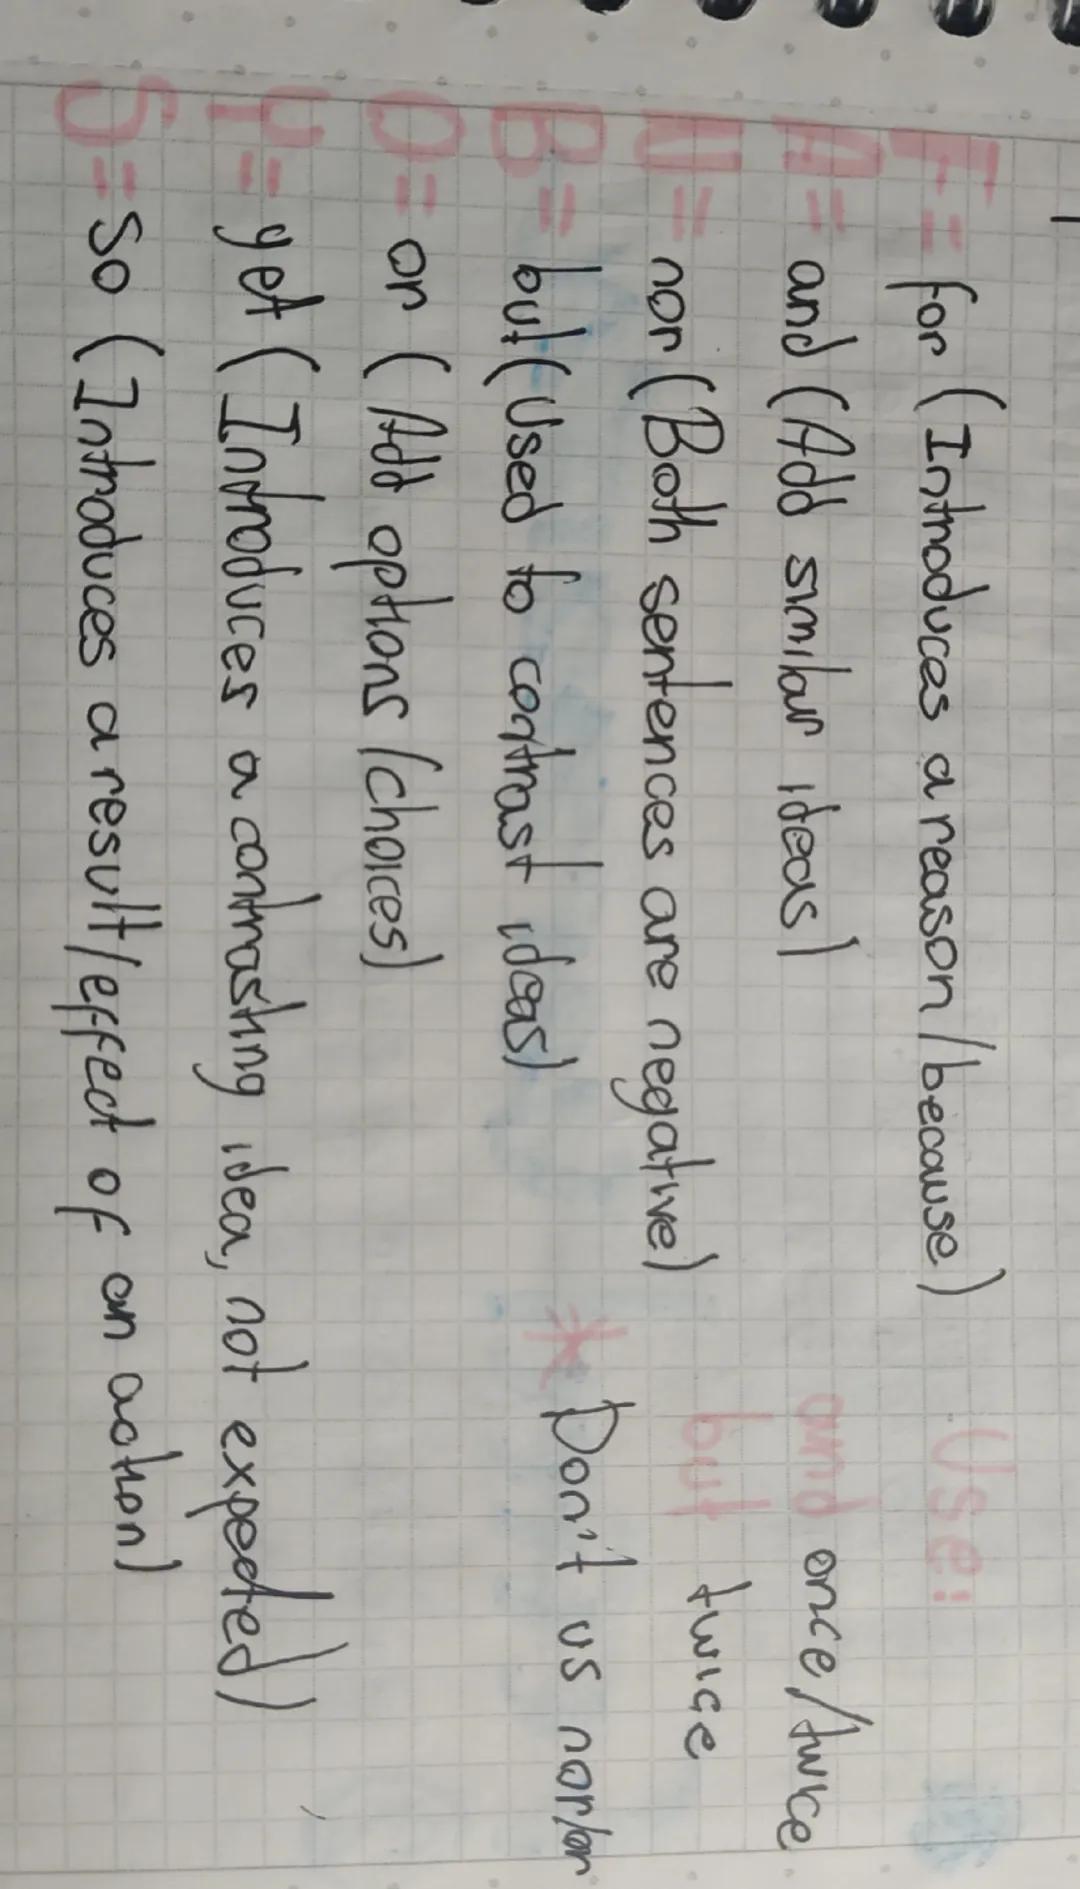 F= for (Introduces a reason/because)
Use:
A= and (Add similar ideas)
and once/twice
N= nor (Both sentences are negative)
but twice
B= but (Used to contrast ideas)
* Don't us nor/or
O= or (Add options/choices)
Y= yet (Introduces a contrasting idea, not expected)
S= so (Introduces a result/effect of an action)